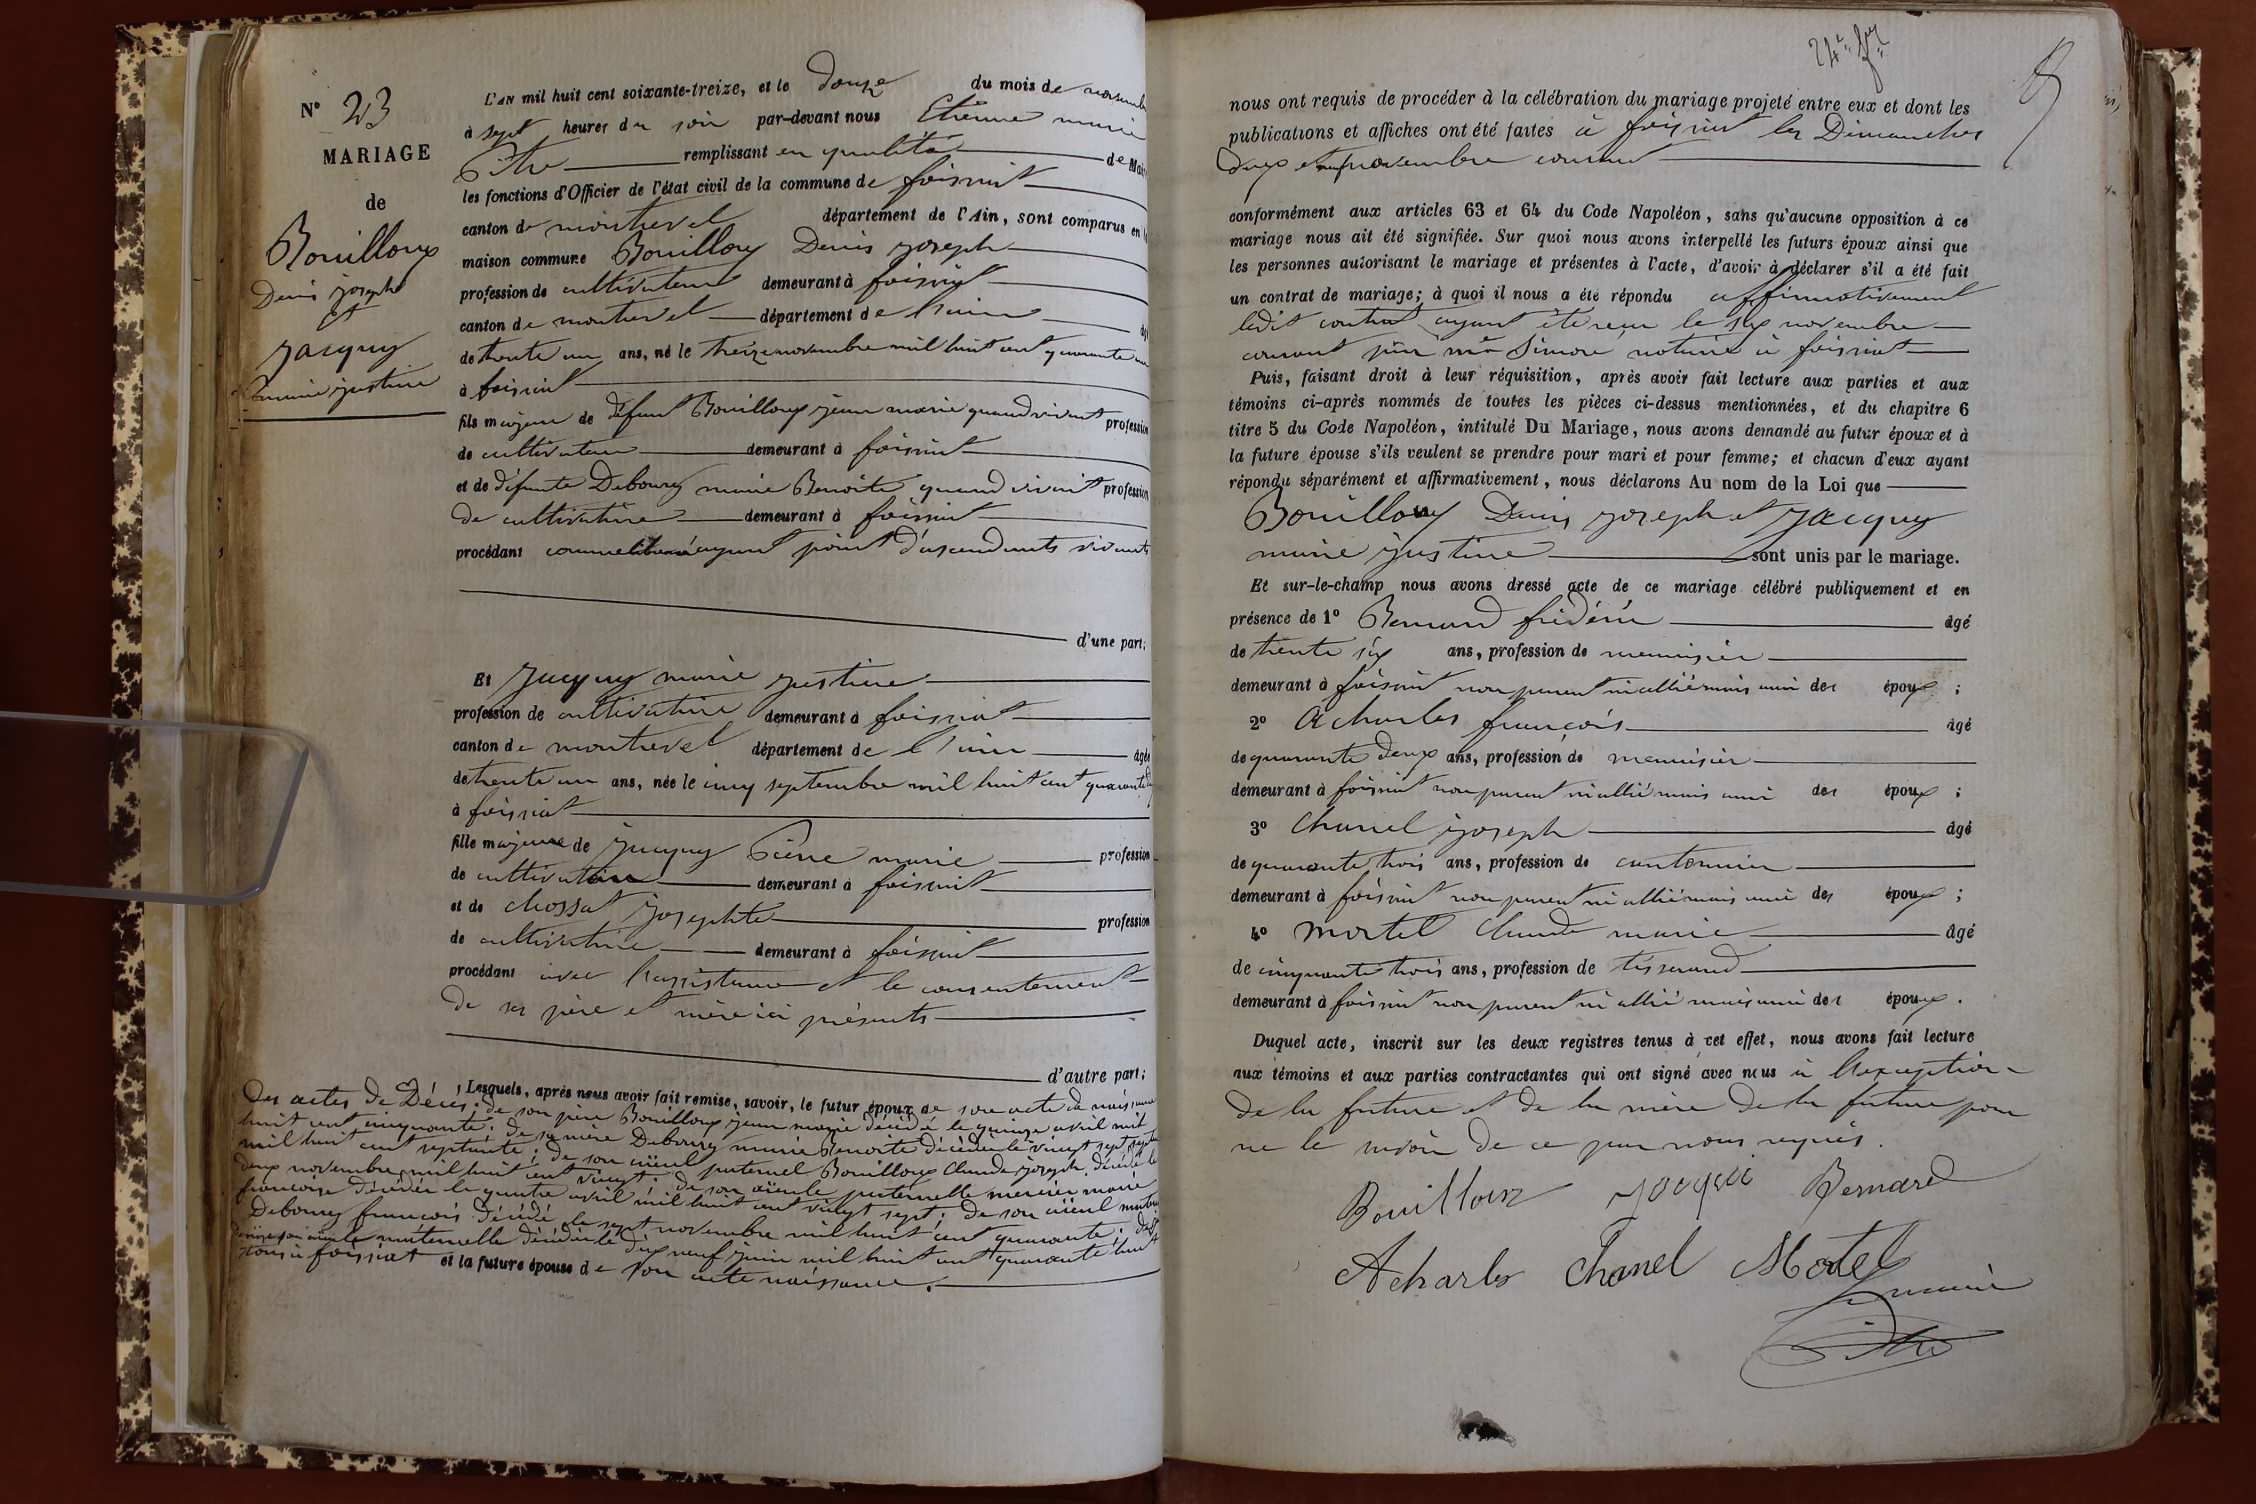 N° 23
MARIAGE
de
Bouilloux
Denis joseph
et
jacquy
marie justine
L'AN mil huit cent soixante-treize, et le douze du mois de novembre
à sept heures du soir par-devant nous Etienne marie
Pitre remplissant en qualité de Maire
les fonctions d'Officier de l'état civil de la commune de foissiat
canton de montrevel département de l'Ain, sont comparus en la
maison commune Bouilloux Denis joseph
profession de cultivateur demeurant à foissiat
canton de montrevel département de l'ain âgé
de trente un ans, né le treize novembre mil huit cent quarante un
à foissiat
fils majeur de défunt Bouilloux jean marie quand vivant profession
de cultivateur demeurant à foissiat
et de défunte Debourg marie Benoite quand vivait profession
de cultivatrice demeurant à foissiat
procédant comme libre n'ayant point d'ascendants vivants
d'une part;
Et jacquy marie justine
profession de cultivatrice demeurant à foissiat
canton de montrevel département de l'ain âgée
de trente un ans, née le cinq septembre mil huit cent quarante
à foissiat
fille majeure de jacquy Pierre marie profession
de cultivateur demeurant à foissiat
et de chossat josephte profession
de cultivatrice demeurant à foissiat
procédant avec l'assistance et le consentement
de ses père et mère ici présents
d'autre part;
Lesquels, après nous avoir fait remise, savoir, le futur époux de son acte de naissance
des actes de Décès: de son père Bouilloux jean marie décédé le quinze avril mil
huit cent cinquante; de sa mère Debourg marie Benoite décédée le vingt sept
mil huit cent septante; de son aïeul paternel Bouilloux Claude joseph décédé le
deux novembre mil huit cent vingt; de son aïeule paternelle mercier marie
françoise décédée le quatre avril mil huit cent vingt sept; de son aïeul maternel
Debourg françois décédé le sept novembre mil huit cent quarante; de
son aïeule maternelle décédée le dix neuf juin mil huit cent quarante huit
tous à foissiat et la future épouse de son acte naissance.
24e
nous ont requis de procéder à la célébration du mariage projeté entre eux et dont les
publications et affiches ont été faites à foissiat les Dimanches
deux et neuf novembre courant
conformément aux articles 63 et 64 du Code Napoléon, sans qu'aucune opposition à ce
mariage nous ait été signifiée. Sur quoi nous avons interpellé les futurs époux ainsi que
les personnes autorisant le mariage et présentes à l'acte, d'avoir à déclarer s'il a été fait
un contrat de mariage; à quoi il nous a été répondu affirmativement
ledit contrat ayant été reçu le six novembre
courant par me Simore notaire à foissiat
Puis, faisant droit à leur réquisition, après avoir fait lecture aux parties et aux
témoins ci-après nommés de toutes les pièces ci-dessus mentionnées, et du chapitre 6
titre 5 du Code Napoléon, intitulé Du Mariage, nous avons demandé au futur époux et à
la future épouse s'ils veulent se prendre pour mari et pour femme; et chacun d'eux ayant
répondu séparément et affirmativement, nous déclarons Au nom de la Loi que
Bouilloux Denis joseph et jacquy
marie justine sont unis par le mariage.
Et sur-le-champ nous avons dressé acte de ce mariage célébré publiquement et en
présence de 1° Bernard frédéric âgé
de trente six ans, profession de menuisier
demeurant à foissiat non parent ni allié mais ami des époux;
2° Acharles françois âgé
de quarante deux ans, profession de menuisier
demeurant à foissiat non parent ni allié mais ami des époux;
3° Chanel joseph âgé
de quarante trois ans, profession de cantonnier
demeurant à foissiat non parent ni allié mais ami des époux;
4° mortel Claude marie âgé
de cinquante trois ans, profession de tisserand
demeurant à foissiat non parent ni allié mais ami des époux.
Duquel acte, inscrit sur les deux registres tenus à cet effet, nous avons fait lecture
aux témoins et aux parties contractantes qui ont signé avec nous à l'exception
de la future et de la mère de la future pour
ne le savoir de ce par nous requis.
Bouilloux jacquii Bernard
Acharles Chanel Mortel
Le maire
Pitre